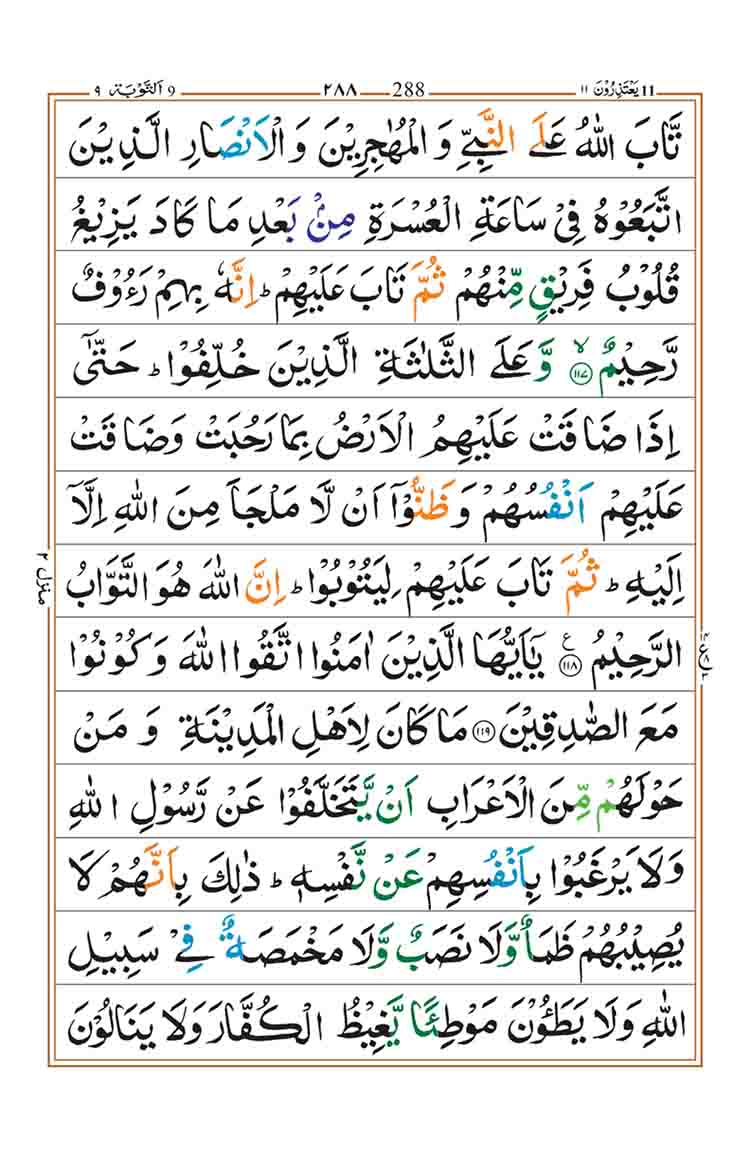 11 يَعْتَذِرُوْنَ ١١ 288 ٢٨٨ 9 اَلتَّوْبَة ٩
تَّابَ اللّٰهُ عَلَے النَّبِیِّ وَ الْمُهٰجِرِيْنَ وَ الْاَنْصَارِ الَّذِيْنَ
اتَّبَعُوْهُ فِیْ سَاعَةِ الْعُسْرَةِ مِنْۢ بَعْدِ مَا كَادَ يَزِيْغُ
قُلُوْبُ فَرِيْقٍ مِّنْهُمْ ثُمَّ تَابَ عَلَيْهِمْ ؕ اِنَّهٗ بِهِمْ رَءُوْفٌ
رَّحِيْمٌ ۙ ﴿١١٧﴾ وَّ عَلَے الثَّلٰثَةِ الَّذِيْنَ خُلِّفُوْا ؕ حَتّٰٓی
اِذَا ضَاقَتْ عَلَيْهِمُ الْاَرْضُ بِمَا رَحُبَتْ وَضَاقَتْ
عَلَيْهِمْ اَنْفُسُهُمْ وَ ظَنُّوْٓا اَنْ لَّا مَلْجَاَ مِنَ اللّٰهِ اِلَّآ
اِلَيْهِ ؕ ثُمَّ تَابَ عَلَيْهِمْ لِيَتُوْبُوْا ؕ اِنَّ اللّٰهَ هُوَ التَّوَّابُ
الرَّحِيْمُ ﴿١١٨﴾ ع يٰٓاَيُّهَا الَّذِيْنَ اٰمَنُوا اتَّقُوا اللّٰهَ وَ كُوْنُوْا
مَعَ الصّٰدِقِيْنَ ﴿١١٩﴾ مَا كَانَ لِاَهْلِ الْمَدِيْنَةِ وَ مَنْ
حَوْلَهُمْ مِّنَ الْاَعْرَابِ اَنْ يَّتَخَلَّفُوْا عَنْ رَّسُوْلِ اللّٰهِ
وَلَا يَرْغَبُوْا بِاَنْفُسِهِمْ عَنْ نَّفْسِهٖ ؕ ذٰلِكَ بِاَنَّهُمْ لَا
يُصِيْبُهُمْ ظَمَاٌ وَّلَا نَصَبٌ وَّلَا مَخْمَصَةٌ فِیْ سَبِيْلِ
اللّٰهِ وَلَا يَطَـُٔوْنَ مَوْطِئًا يَّغِيْظُ الْكُفَّارَ وَلَا يَنَالُوْنَ
منزل ٢